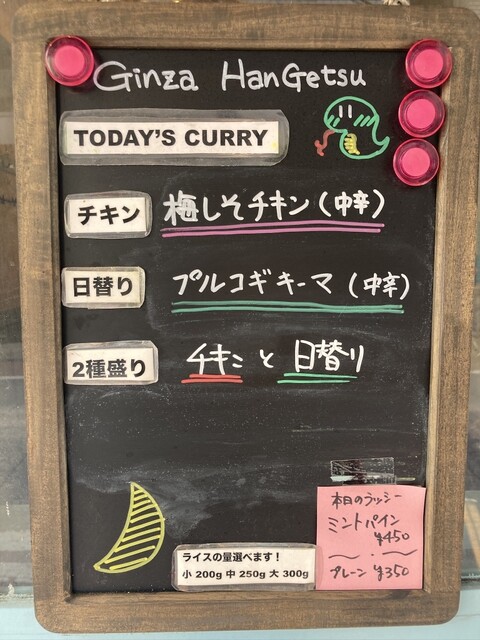 Ginza HanGetsu
TODAY'S CURRY
チキン 梅しそチキン(中辛)
日替り プルコギキーマ(中辛)
2種盛り チキンと日替り
本日のラッシー
ミントパイン
¥450
プレーン ¥350
ライスの量選べます!
小 200g 中 250g 大 300g